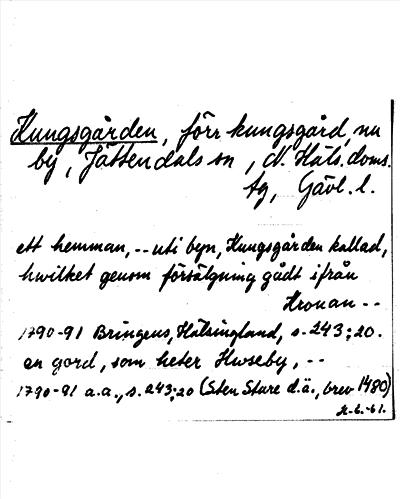 Kungsgården, förr kungsgård, nu
by, Jättendals sn, N. Häls. doms.
tg, Gävl. l.
ett hemman, -- uti byn, Kungsgården kallad,
hwilket genom försälgning gådt ifrån
Kronan --
1790-91 Bringeus, Hälsingland, s. 243:20.
en gord, som heter Hwseby, --
1790-91 a.a., s. 243:20 (Sten Sture d.ä., brev 1480)